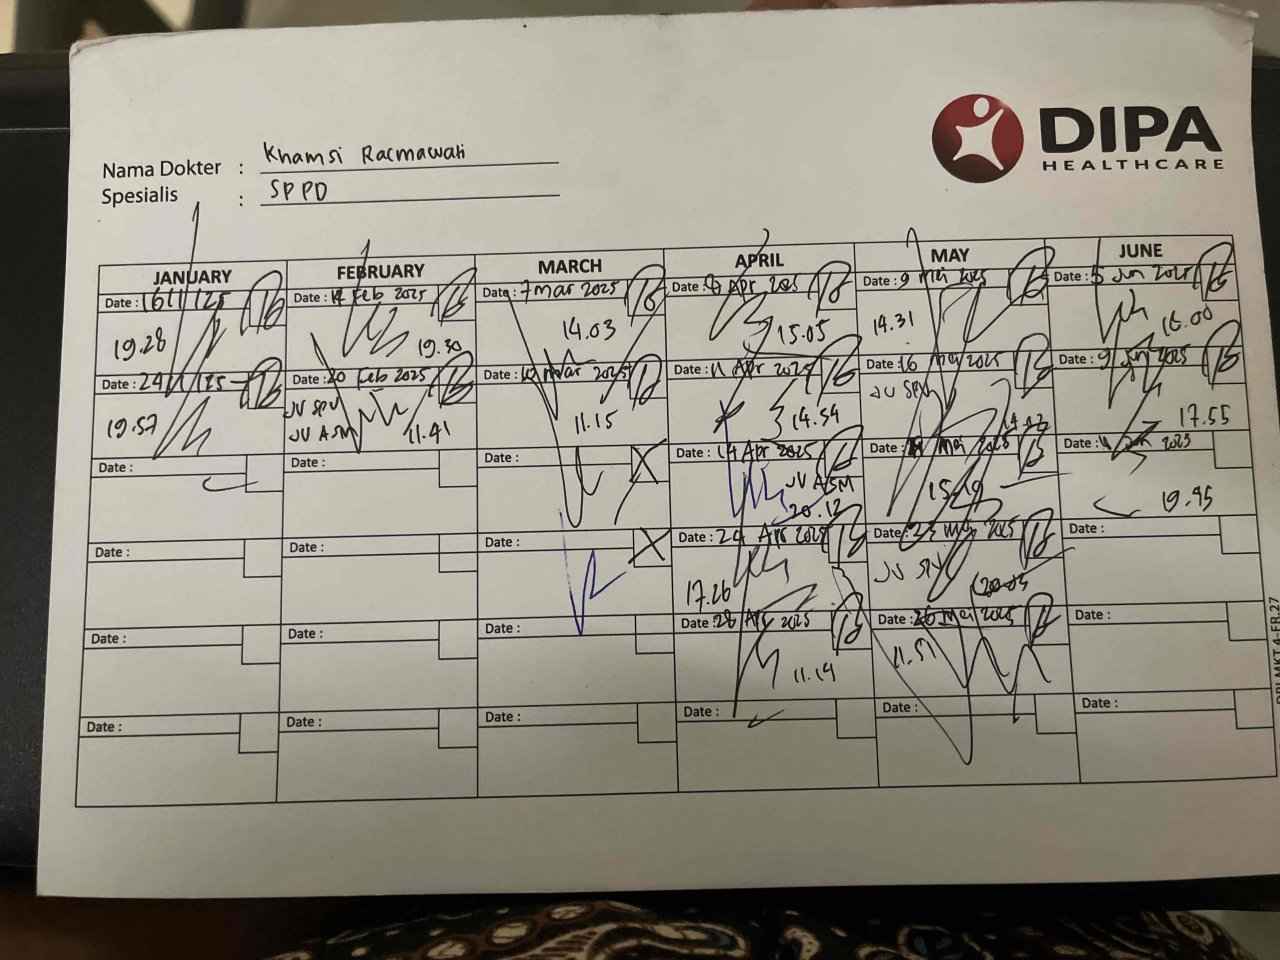 DIPA
HEALTHCARE
Nama Dokter : Khamsi Racmawati
Spesialis : SPPD
JANUARY FEBRUARY MARCH APRIL MAY JUNE
Date : 16/1/25 Date : Feb 2025 Date : 7 mar 2025 Date : Apr 2025 Date : 9 mei 2025 Date : 5 Jun 2025
19.28 19.30 14.03 15.05 14.31 16.00
Date : 24/1/25 Date : 20 Feb 2025 Date : mar 2025 Date : 11 Apr 2025 Date : 16 mei 2025 Date : 9 Jun 2025
19.57 JV SPV JV ASM 11.41 11.15 14.54 JV SPV 17.55
Date : Date : Date : Date : 14 Apr 2025 Date : mei 2025 Date : Jun 2025
JV ASM 20.12 15.19 19.45
Date : Date : Date : Date : 24 Apr 2025 Date : 23 mei 2025 Date :
17.26 JV SPV
Date : Date : Date : Date : 28 Apr 2025 Date : 26 mei 2025 Date :
11.14 11.51
Date : Date : Date : Date : Date : Date :